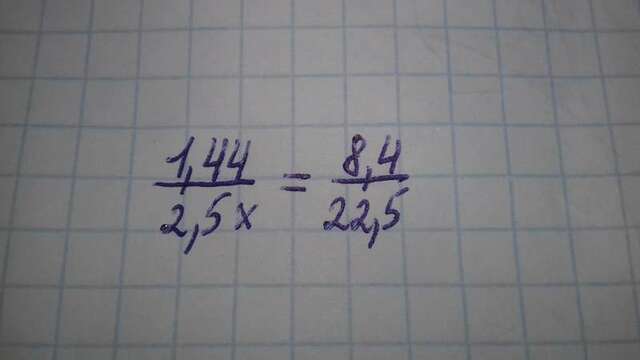 1,44 / 2,5x = 8,4 / 22,5